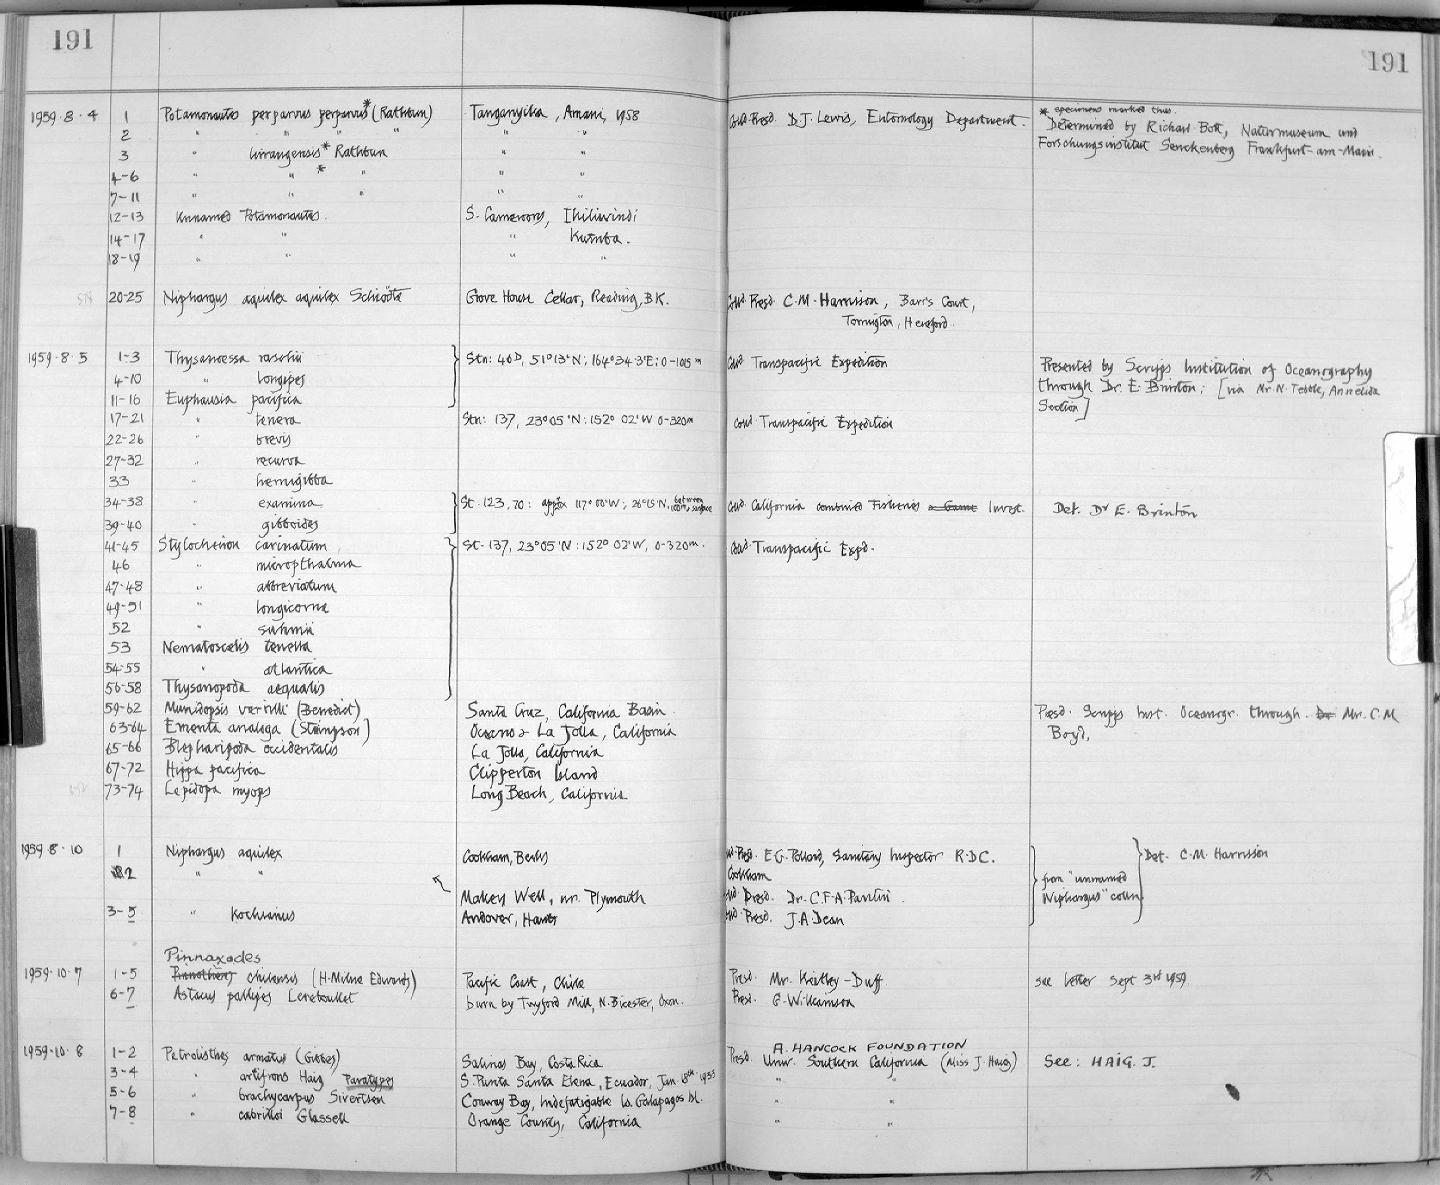 191
191
1959.8.4 1 Potamonautes perparvus perparvus* (Rathbun) Tanganyika, Amani, 1958 Coll. Presd. D.J. Lewis, Entomology Department. * specimens marked thus
2 " " " " " " Determined by Richard Bott, Naturmuseum und
3 " lirrangensis* Rathbun " " Forschungsinstitut Senckenberg Frankfurt-am-Main.
4-6 " " * " " "
7-11 " " " " "
12-13 Unnamed Potamonautes. S. Cameroons,
14-17 " " " Kumba.
18-19 " " " "
20-25 Niphargus aquilex aquilex Schiödte Grove House Cellar, Reading, BK. Coll. Presd. C.M. Harrison, Barr's Court,
Tornington, Hereford.
1959.8.5 1-3 Thysanoessa raschii Stn: 40D, 51°13'N; 164°34.3'E; 0-1015m Coll. Transpacific Expedition Presented by Scripps Institution of Oceanography
4-10 " longipes through Dr. E. Brinton; [via Mr. N. Tebble, Annelida
11-16 Euphausia pacifica Section]
17-21 " tenera Stn: 137, 23°05'N: 152° 02'W 0-320m Coll. Transpacific Expedition
22-26 " brevis
27-32 " recurva
33 " hemigibba
34-38 " examinia St. 123, 70: approx 117°00'W; 26°15'N, between 100m, surface Coll. California combined Fisheries a Game Invest. Det. Dr E. Brinton
39-40 " gibboides
41-45 Stylocheiron carinatum St. 137, 23°05'N: 152° 02'W, 0-320m. Coll. Transpacific Expd.
46 " microphthalma
47-48 " abbreviatum
49-51 " longicorne
52 " suhmii
53 Nematoscelis tenella
54-55 " atlantica
56-58 Thysanopoda aequalis
59-62 Munidopsis verrilli (Benedict) Santa Cruz, California Basin. Presd. Scripps Inst. Oceanogr. through. Dr. Mr. C.M
63-64 Emerita analoga (Stimpson) Oceano & La Jolla, California Boyd,
65-66 Blepharipoda occidentalis La Jolla, California
67-72 Hippa pacifica Clipperton Island
73-74 Lepidopa myops Long Beach, California
1959.8.10 1 Niphargus aquilex Cookham, Berks Presd. E.G. Pollard, Sanitary Inspector R.D.C. Det. C.M. Harrisson
2 " " Cookham from "unnamed
Makers Well, nr. Plymouth Coll. Presd. Dr. C.F.A. Pantin. Niphargus" colln
3-5 " kochianus Andover, Hants Coll. Presd. J.A. Dean
Pinnaxodes
1959.10.7 1-5 Pinnotheres chilensis (H. Milne Edwards) Pacific Coast, Chile Presd. Mr. Keatley-Duff see letter Sept 3rd 1959
6-7 Astacus pallipes Lereboullet burn by Twyford Mill, N. Bicester, Oxon. Presd. G. Williamson
A. HANCOCK FOUNDATION
1959.10.8 1-2 Petrolisthes armatus (Gibbes) Salinas Bay, Costa Rica Presd. Univ. Southern California (Miss J. Haig) See: HAIG. J.
3-4 " artifrons Haig Paratypes S. Punta Santa Elena, Ecuador, Jan. 18th. 1933 " "
5-6 " brachycarpus Sivertsen Conway Bay, Indefatigable Is. Galapagos Isl. " "
7-8 " cabrilloi Glassell Orange County, California " "